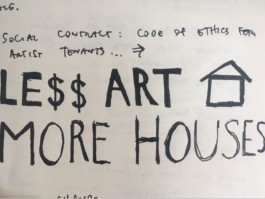 SOCIAL CONTRACT: CODE OF ETHICS FOR
ARTIST TENANTS... →
LE$$ ART
MORE HOUSES